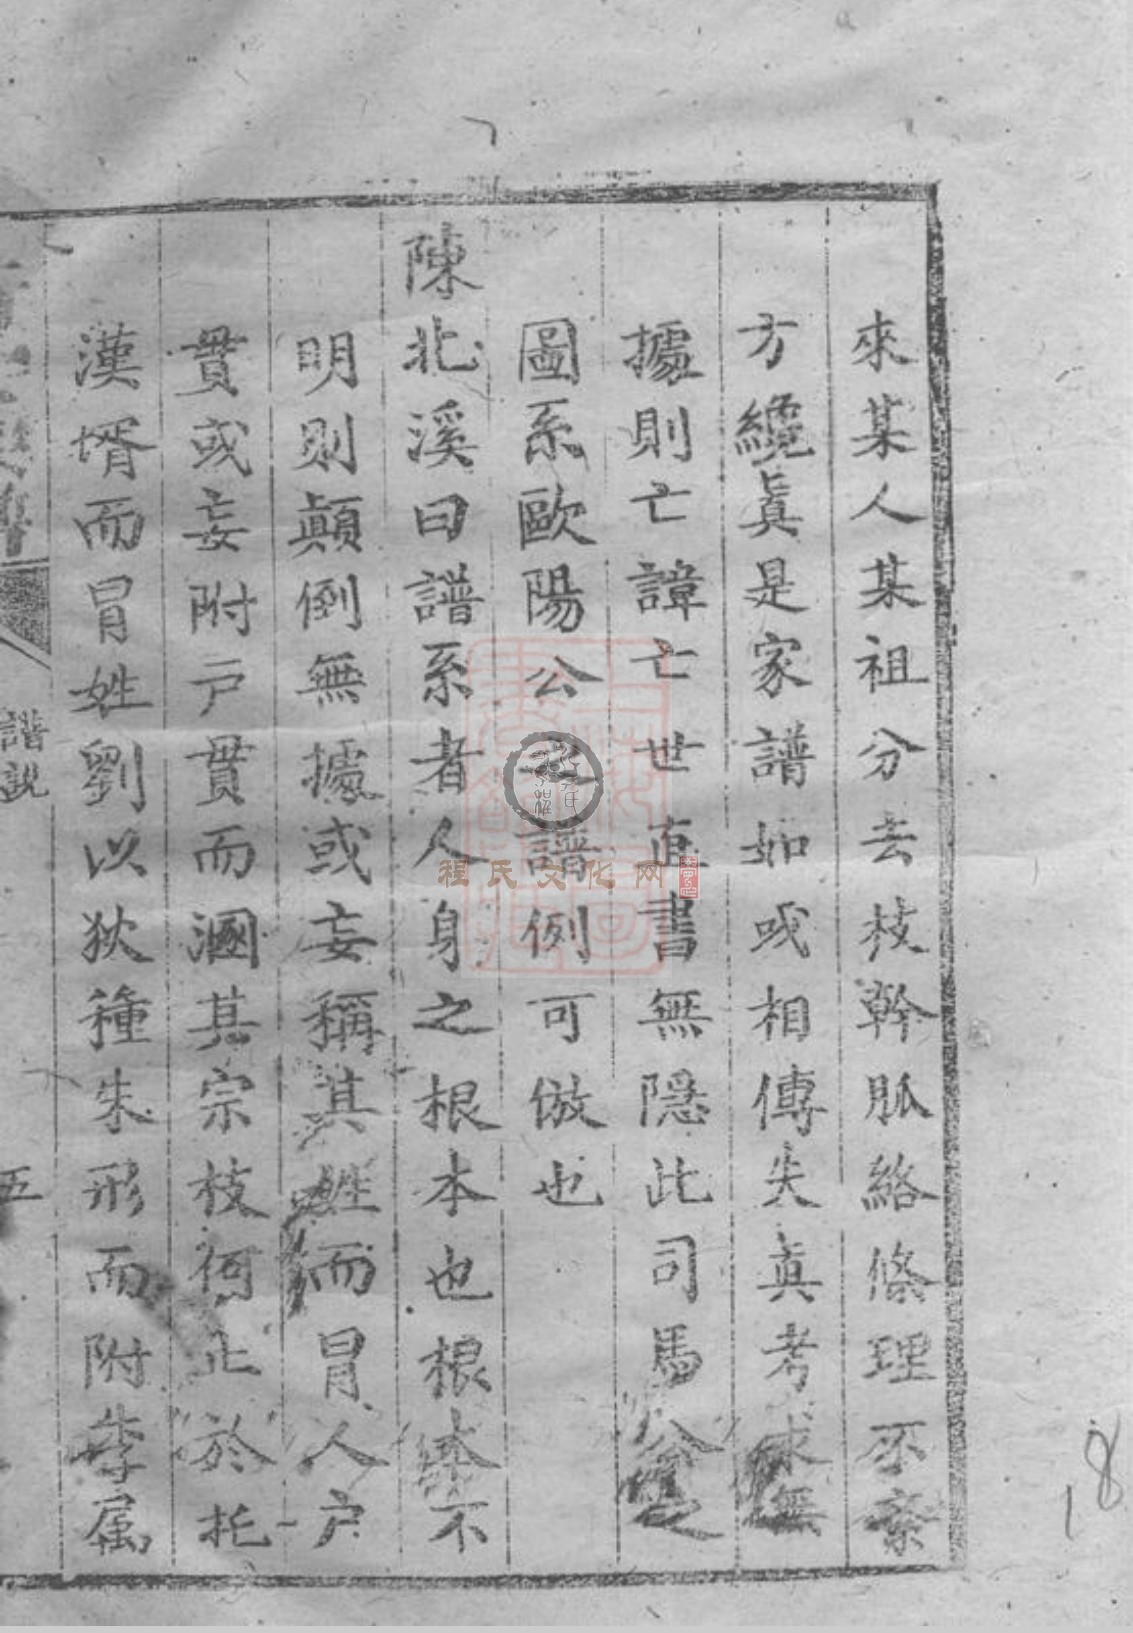 來某人某祖分去枝幹脈絡條理不紊
方纔眞是家譜如或相傳失眞考求無
據則亡諱亡世直書無隱此司馬公之
圖系歐陽公之譜例可倣也
陳北溪曰譜系者人身之根本也根本不
明則顛倒無據或妄稱其姓而冒人户
貫或妄附户貫而溷其宗枝何止於托
漢壻而冒姓劉以狄種朱形而附李属
譜説
五
程氏文化网
18